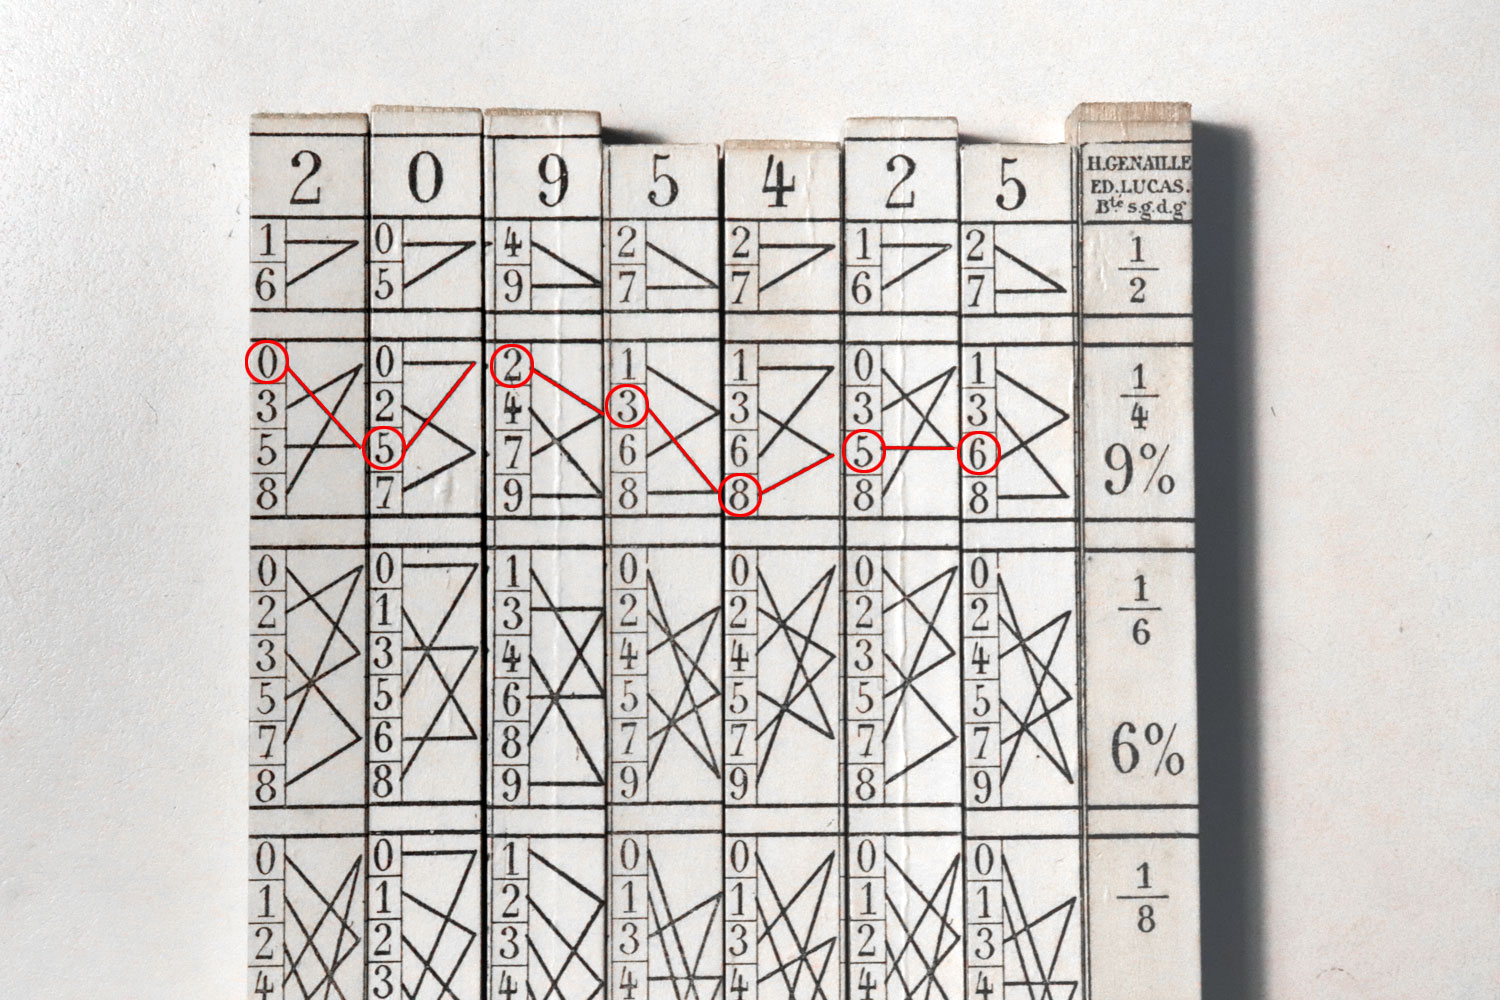 2 0 9 5 4 2 5 H.GENAILLE
ED.LUCAS.
Bté s.g.d.g
1 0 4 2 2 1 2 1
6 5 9 7 7 6 7 2
0 0 2 1 1 0 1 1
3 2 4 3 3 3 3 4
5 5 7 6 6 5 6 9%
8 7 9 8 8 8 8
0 0 1 0 0 0 0 1
2 1 3 2 2 2 2 6
3 3 4 4 4 3 4
5 5 6 5 5 5 5
7 6 8 7 7 7 7 6%
8 8 9 9 9 8 9
0 0 1 0 0 0 0 1
1 1 2 1 1 1 1 8
2 2 3 3 3 2 3
4 3 4 4 4 4 4